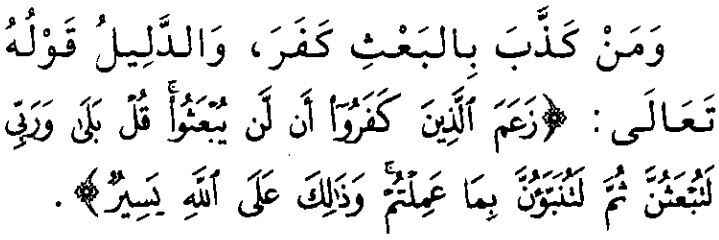 وَمَنْ كَذَّبَ بِالبَعْثِ كَفَرَ، وَالدَّلِيلُ قَوْلُهُ
تَعَالَى: ﴿زَعَمَ ٱلَّذِينَ كَفَرُوٓا۟ أَن لَّن يُبْعَثُوا۟ۚ قُلْ بَلَىٰ وَرَبِّى
لَتُبْعَثُنَّ ثُمَّ لَتُنَبَّؤُنَّ بِمَا عَمِلْتُمْۚ وَذَٰلِكَ عَلَى ٱللَّهِ يَسِيرٌ﴾.